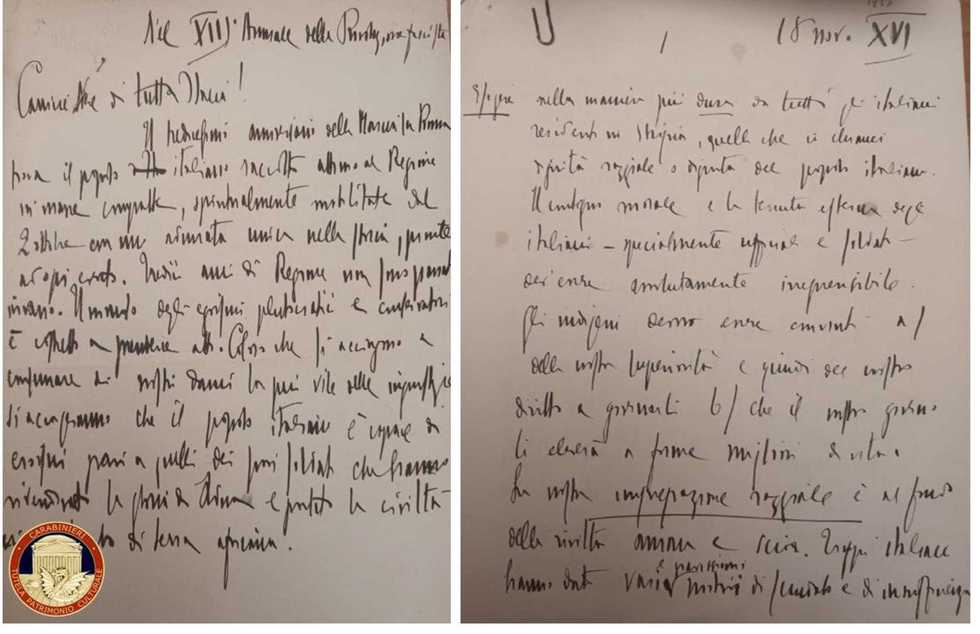 Nel XIII° Annuale della Rivoluzione fascista
Camicie Nere di tutta Italia!
Il tredicesimo anniversario della Marcia su Roma
trova il popolo italiano raccolto attorno al Regime
in masse compatte, spiritualmente mobilitate dal
2 ottobre con una adunata unica nella storia, pronte
ad ogni evento. Tredici anni di Regime non sono passati
invano. Il mondo degli egoismi plutocratici e conservatori
è costretto a prenderne atto. Coloro che si accingono a
consumare ai nostri danni la più vile delle ingiustizie
si accorgeranno che il popolo italiano è capace di
eroismi pari a quelli dei suoi soldati che hanno
rivendicato la gloria di Adua e portato la civiltà
di terra africana.
CARABINIERI
TUTELA PATRIMONIO CULTURALE
1
18 nov. XVI
Esigere nella maniera più dura da tutti gli italiani
residenti in, quella che si chiama
dignità razziale o dignità del popolo italiano.
Il contegno morale e la tenuta esterna degli
italiani – specialmente ufficiali e soldati –
dev'essere assolutamente irreprensibile.
Gli indigeni devono essere convinti a/
della nostra superiorità e quindi del nostro
diritto a governarli b/ che il nostro governo
li eleverà a forme migliori di vita.
La nostra impreparazione razziale è al fondo
della rivolta amara e Troppi italiani
hanno dato di scandalo e di insufficienza